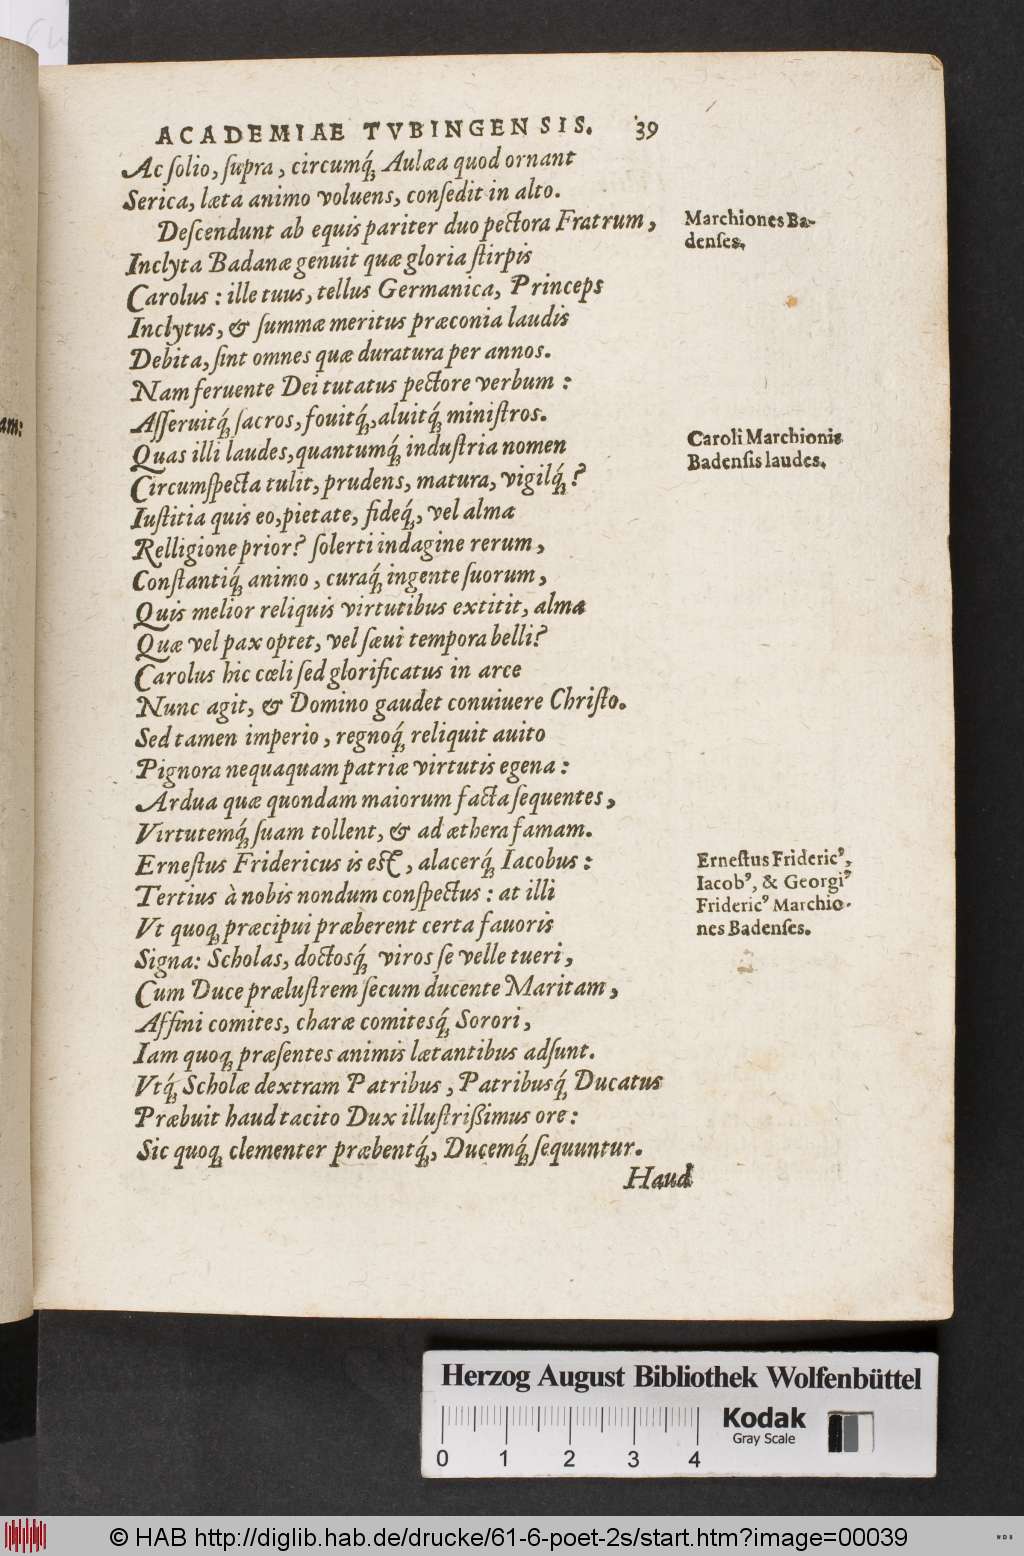 ACADEMIAE TVBINGENSIS. 39
Ac ſolio, ſupra, circumq́ꝫ Aulæa quod ornant
Serica, læta animo voluens, conſedit in alto.
Deſcendunt ab equis pariter duo pectora Fratrum,
Marchiones Ba-
denſes.
Inclyta Badanæ genuit quæ gloria ſtirpis
Carolus: ille tuus, tellus Germanica, Princeps
Inclytus, & ſummæ meritus præconia laudis
Debita, ſint omnes quæ duratura per annos.
Nam feruente Dei tutatus pectore verbum:
Aſſeruitq́ꝫ ſacros, fouitq́ꝫ, aluitq́ꝫ miniſtros.
Caroli Marchionis
Badenſis laudes.
Quas illi laudes, quantumq́ꝫ induſtria nomen
Circumſpecta tulit, prudens, matura, vigilq́ꝫ?
Iuſtitia quis eo, pietate, fideq́ꝫ, vel alma
Relligione prior? ſolerti indagine rerum,
Conſtantiq́ꝫ animo, curaq́ꝫ ingente ſuorum,
Quis melior reliquis virtutibus extitit, alma
Quæ vel pax optet, vel ſæui tempora belli?
Carolus hic cœli ſed glorificatus in arce
Nunc agit, & Domino gaudet conuiuere Chriſto.
Sed tamen imperio, regnoq́ꝫ reliquit auito
Pignora nequaquam patriæ virtutis egena:
Ardua quæ quondam maiorum facta ſequentes,
Virtutemq́ꝫ ſuam tollent, & ad æthera famam.
Erneſtus Fridericus is eſt, alacerq́ꝫ Iacobus:
Erneſtus Fridericꝰ,
Iacobꝰ, & Georgiꝰ
Fridericꝰ Marchio-
nes Badenſes.
Tertius à nobis nondum conſpectus: at illi
Vt quoqꝫ præcipui præberent certa fauoris
Signa: Scholas, doctosq́ꝫ viros ſe velle tueri,
Cum Duce præluſtrem ſecum ducente Maritam,
Affini comites, charæ comitesq́ꝫ Sorori,
Iam quoqꝫ præſentes animis lætantibus adſunt.
Vtq́ꝫ Scholæ dextram Patribus, Patribusq́ꝫ Ducatus
Præbuit haud tacito Dux illuſtrißimus ore:
Sic quoqꝫ clementer præbentq́ꝫ, Ducemq́ꝫ ſequuntur.
Haud
am:
Herzog August Bibliothek Wolfenbüttel
Kodak
Gray Scale
0 1 2 3 4
© HAB http://diglib.hab.de/drucke/61-6-poet-2s/start.htm?image=00039